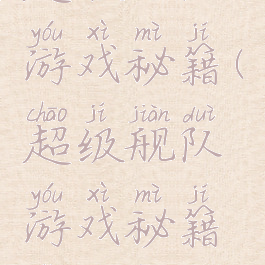 yóu xì mì jí
游戏秘籍(
chāo jí jiàn duì
超级舰队
yóu xì mì jí
游戏秘籍